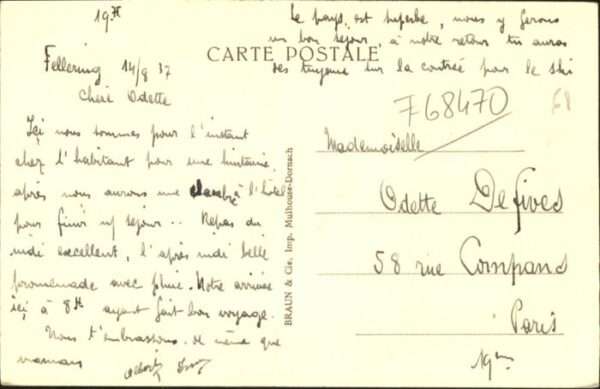 19H
Le pays est superbe, nous y ferons
un bon séjour, à notre retour tu auras
des tuyaux sur la contrée pour le ski
CARTE POSTALE
Fellering 14/8 37
Chère Odette
768470
68
Içi nous sommes pour l'instant
chez l'habitant pour une huitaine
après nous aurons une chambre à l'hôtel
pour finir séjour.. Repas du
midi excellent, l'après midi belle
promenade avec pluie. Notre arrivée
içi à 8H ayant fait bon voyage.
Nous t'embrassons de même que
mamans
BRAUN & Cie, Imp. Mulhouse-Dornach
Mademoiselle
Odette Defives
58 rue Compans
Paris
19em